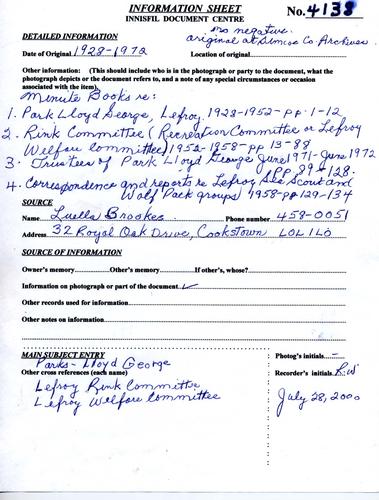 INFORMATION SHEET
INNISFIL DOCUMENT CENTRE
No. 4138
no negative
original at Simcoe Co. Archives
DETAILED INFORMATION
Date of Original 1928-1972 Location of original
Other information: (This should include who is in the photograph or party to the document, what the
photograph depicts or the document refers to, and a note of any special circumstances or occasion
associated with the item).
Minute Books re:
1. Park Lloyd George, Lefroy. 1928-1952- pp. 1-12
2. Rink Committee (Recreation Committee or Lefroy
Welfare Committee) 1952-1958- pp 13-88
3. Trustees of Park Lloyd George June 1971-June 1972
pp. 89-128.
4. Correspondence and reports re Lefroy Scout and
Wolf Pack groups) 1958-pp 129-134
SOURCE
Name Luella Brookes Phone number 458-0051
Address 32 Royal Oak Drive, Cookstown L0L 1L0
SOURCE OF INFORMATION
Owner's memory Other's memory If other's, whose?
Information on photograph or part of the document ✓
Other records used for information
Other notes on information
MAIN SUBJECT ENTRY
Parks - Lloyd George
Other cross references (each name)
Lefroy Rink Committee
Lefroy Welfare Committee
Photog's initials -
Recorder's initials R.W
July 28, 2000